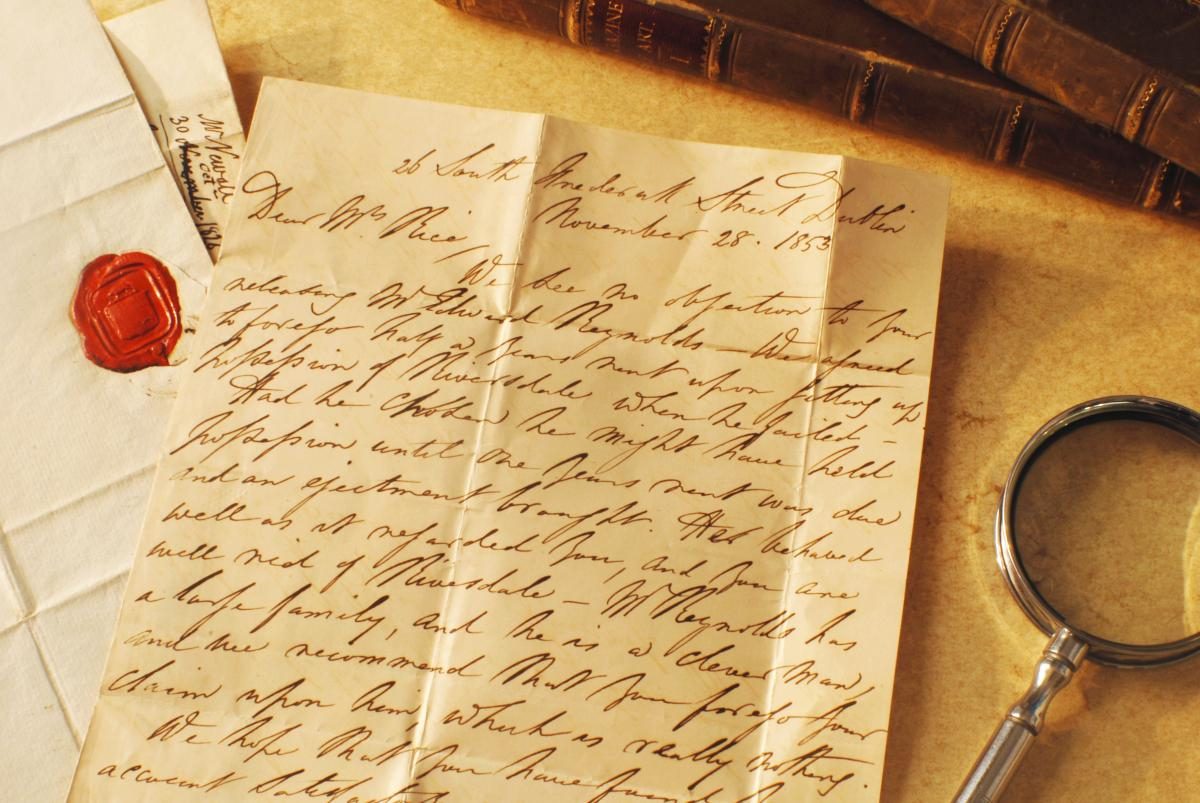 26 South Frederick Street Dublin
November 28. 1853
Dear Mrs Rice,
We see no objection to your
releasing Mr Edward Reynolds — We agreed
to forego half a years rent upon getting up
possession of Riversdale when he failed —
Had he chosen he might have held
possession until one years rent was due
and an ejectment brought. He behaved
well as it regarded you, and you are
well rid of Riversdale — Mr Reynolds has
a large family, and he is a clever man,
and we recommend that you forego your
claim upon him which is really nothing.
We hope that you have found
account
30
MAZINE
ART.
I